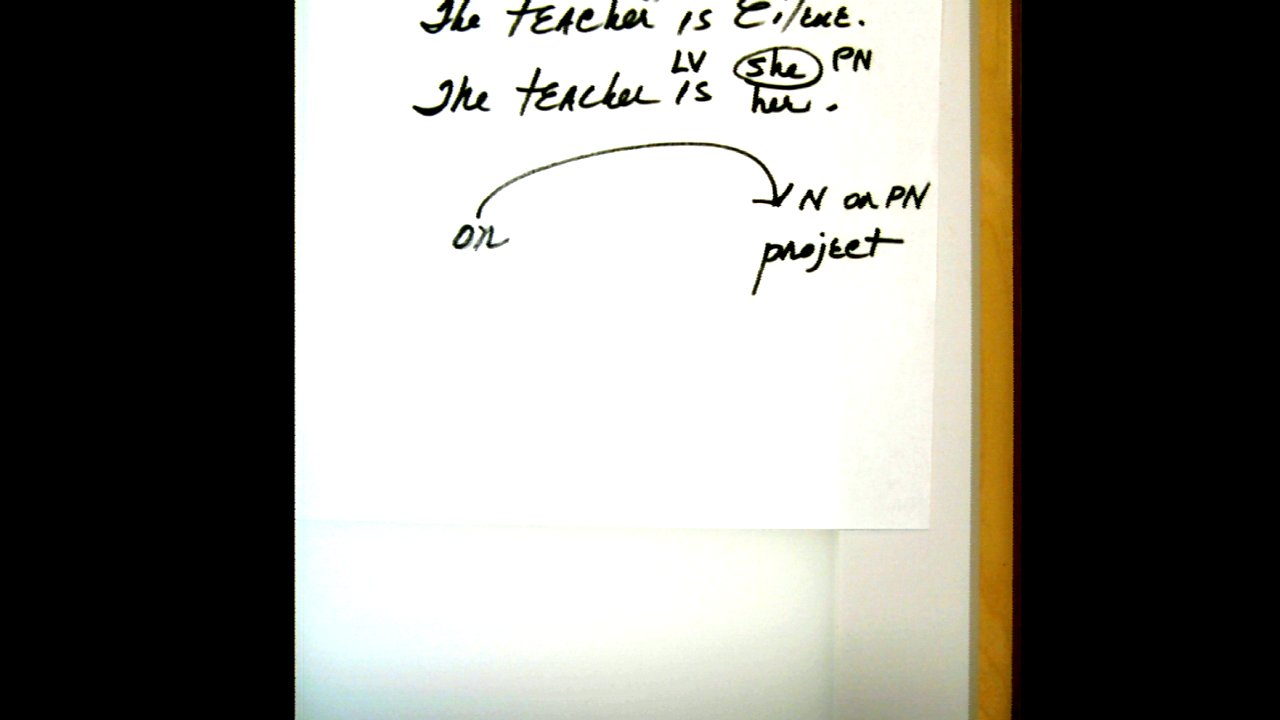 The teacher is Eilene.
LV she PN
The teacher is her.
N or PN
on project